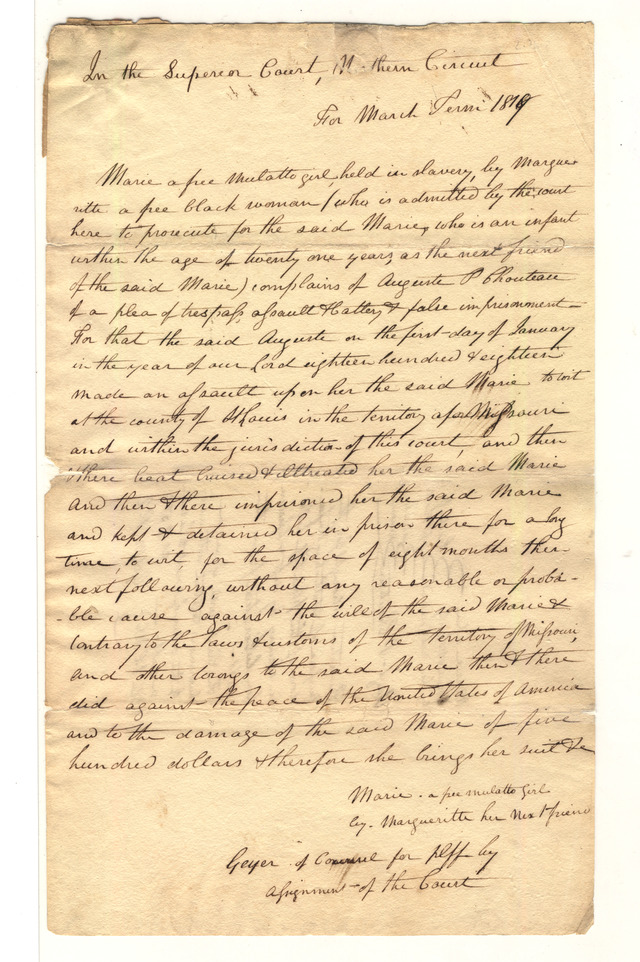 In the Superior Court, N thern Circuit
For March Term 1819
Marie a free mulatto girl, held in slavery, by Margue
ritte a free black woman (who is admitted by the court
here to prosecute for the said Marie, who is an infant
within the age of twenty one years, as the next friend
of the said Marie) complains of Auguste P Chouteau
of a plea of trespass, assault & battery & false imprisonment –
For that the said Auguste on the first day of January
in the year of our Lord eighteen hundred & eighteen
made an assault upon her the said Marie to wit
at the county of St Louis in the territory of Missouri
and within the jurisdiction of this court, and then
& there beat bruised & illtreated her the said Marie
and then & there imprisoned her the said Marie
and kept & detained her in prison there for a long
time, to wit, for the space of eight months then
next following, without any reasonable or proba-
-ble cause against the will of the said Marie &
contrary to the laws & customs of the territory of Missouri,
and other wrongs to the said Marie then & there
did against the peace of the United States of America
and to the damage of the said Marie of five
hundred dollars & therefore she brings her suit &c
Marie . a free mulatto girl
by . Margueritte her Next friend
Geyer of Counsel for plff by
assignment of the Court